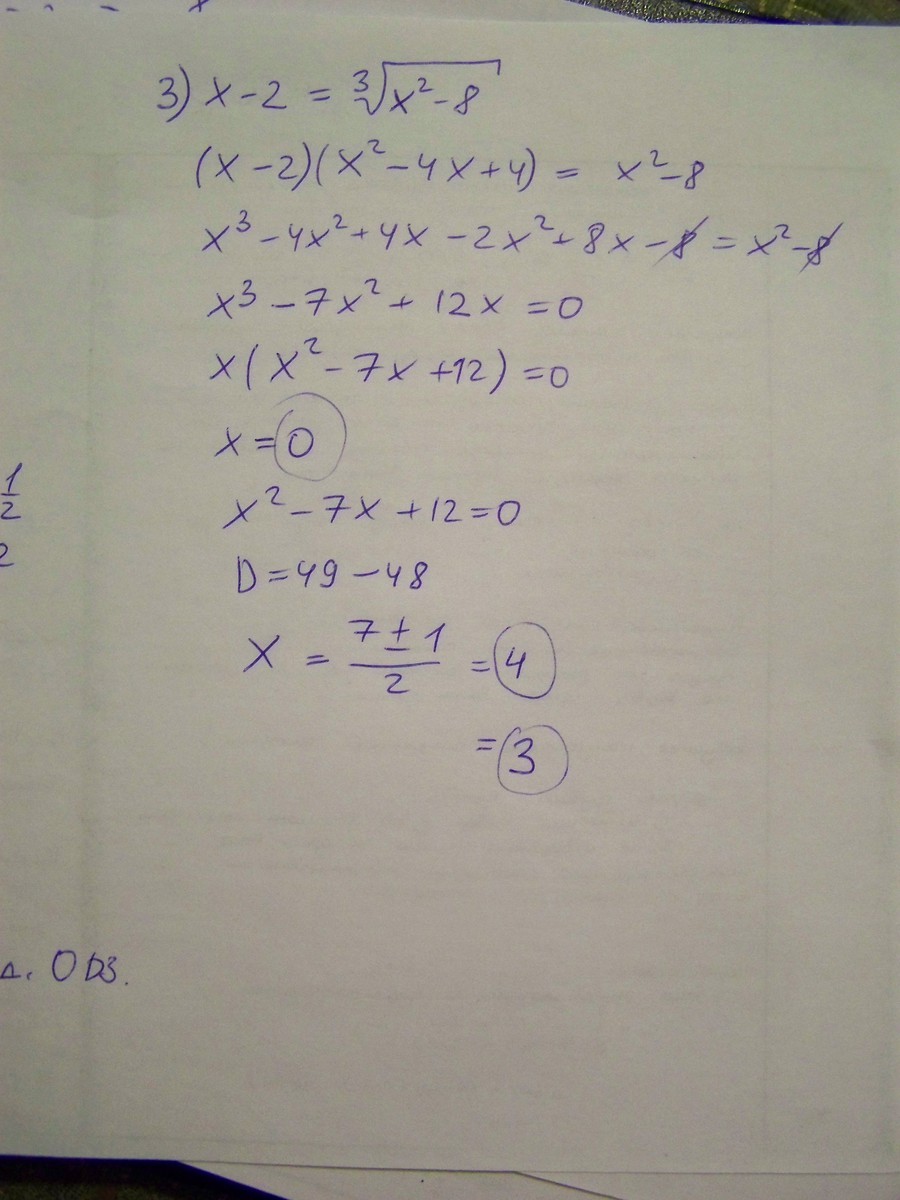 3) x-2 = ∛(x²-8)
(x-2)(x²-4x+4) = x²-8
x³-4x²+4x-2x²+8x-8 = x²-8
x³-7x²+12x=0
x(x²-7x+12)=0
x=0
x²-7x+12=0
1/2
D=49-48
2
x = (7±1)/2 = 4
= 3
ОДЗ.